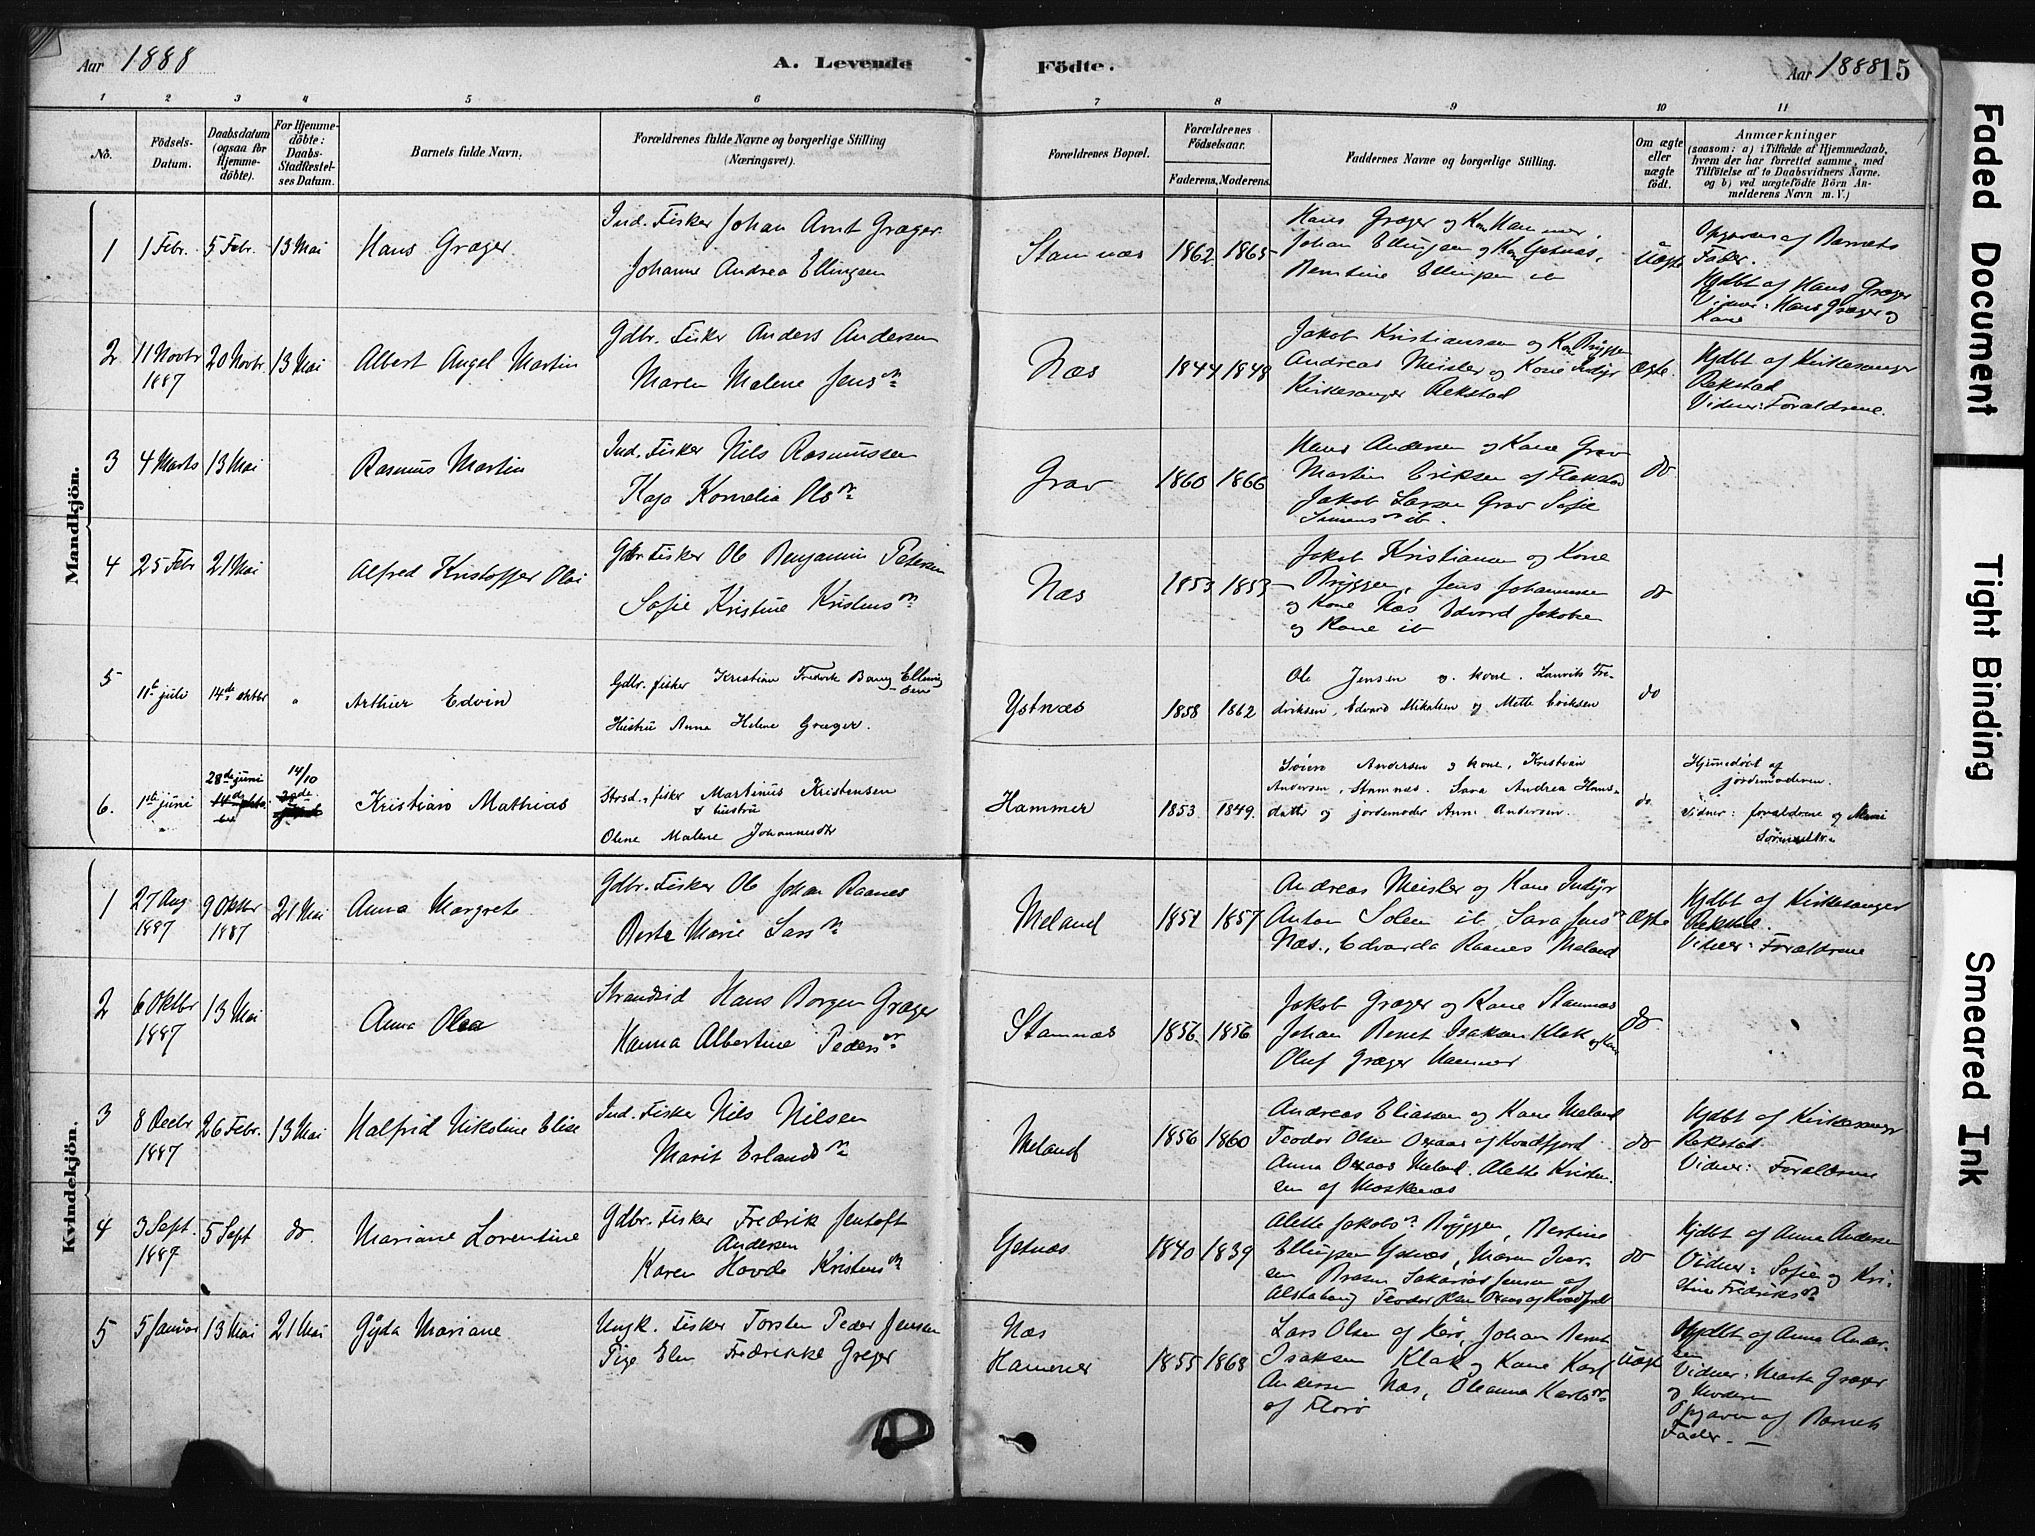 Aar 1888
A. Levende Födte.
Aar 1888 15
1 2 3 4 5 6 7 8 9 10 11
No.
Födsels-Datum.
Daabsdatum (ogsaa for Hjemme-döbte).
For Hjemme-döbte: Daabs-Stadfæstel-ses Datum.
Barnets fulde Navn.
Forældrenes fulde Navne og borgerlige Stilling (Næringsvei).
Forældrenes Bopæl.
Forældrenes Födselsaar.
Faderens. Moderens.
Faddernes Navne og borgerlige Stilling.
Om ægte eller uægte födt.
Anmærkninger
(saasom: a) i Tilfælde af Hjemmedaab, hvem der har forrettet samme, med Tilföielse af to Daabsvidners Navne, og b) ved uægtefödte Börn An-melderens Navn m. V.)
Mandkjön.
1 1 Febr. 5 Febr. 13 Mai Hans Græger
Ind. Fisker Johan Arnt Græger
Johanne Andrea Ellingsen
Stamnæs 1862 1865
Hans Græger og Kone Hammer,
Johan Ellingsen og Kone Ystnæs,
Berntine Ellingsen ib
Uægte
Opgaven af Barnets
Fader.
Hjdbt af Hans Græger
Vidner: Hans Græger og
Kone
2 11 Novbr 1887 20 Novbr. 13 Mai Albert Angel Martin
Gdbr. Fisker Anders Andersen
Maren Malene Jensdr
Næs 1844 1848
Jakob Kristiansen og Kone Bryggen
Andreas Meisler og Kone Indyr
Kirkesanger Rekstad
Ægte.
Hjdbt af Kirkesanger
Rekstad
Vidner: Forældrene.
3 4 Marts 13 Mai Rasmus Martin
Ind. Fisker Nils Rasmussen
Kaja Kornelia Olsdr
Grav 1860 1866
Hans Andersen og Kone Grav
Martin Eriksen af Flakstad
Jakob Larsen Grav Sofie
Simensdr ib.
do
4 25 Febr 21 Mai Alfred Kristoffer Olai
Gdbr. Fisker Ole Benjamin Petersen
Sofie Kristine Kristensdr
Næs 1853 1853
Jakob Kristiansen og Kone
Bryggen, Jens Johannesen
og Kone Næs Edvard Jakobsen
og Kone ib
do
5 11te juli 14de oktbr " Arthur Edvin
Gdbr. fisker Kristian Fredrik Bang Elling-
sen
Hustru Anna Helene Græger.
Ystnæs 1858 1862
Ole Jensen og kone. Laurits Fre-
driksen, Edvard Mikalsen og Mette Eriksen
do
6. 1ste juni 28de juni 14/10 Kristian Mathias
Strsd. fisker Martinus Kristensen
& hustru
Olene Malene Johannesdtr
Hammer 1853 1849.
Sören Andersen og kone, Kristian
Andersen, Stamnæs. Sara Andrea Hans-
datter og jordemoder Anne Andersen.
do.
Hjemmedöbt af
jordemoderen.
Vidner: forældrene og Marie
Kvindekjön.
1 27 Aug 1887 9 Oktbr 1887 21 Mai Anna Margrete
Gdbr. Fisker Ole Johan Raanes
Berte Marie Larsdr
Meland 1851 1857
Andreas Meisler og Kone Indyr
Anton Solem ib, Sara Jensdr
Næs., Edvarda Raanes Meland
Ægte
Hjdbt af Kirkesanger
Rekstad.
Vidner: Forældrene
2 6 Oktbr 1887 13 Mai Anna Olea
Strandsid Hans Borgen Græger
Hanna Albertine Pedersdr
Stamnæs 1856 1856
Jakob Græger og Kone Stamnæs
Johan Bernt Isaksen Klak og Kone
Oluf Græger Hammer
do
3 8 Decbr 1887 26 Febr. 13 Mai Halfrid Nikoline Elise
Ind. Fisker Nils Nilsen
Marit Erlandsdr
Meland 1856 1860
Andreas Eliassen og Kone Meland
Teodor Olsen Oxaas af Kvædfjord
Anna Oxaas Meland. Alette Kristen-
sen af Moskenæs
do
Hjdbt af Kirkesanger
Rekstad
Vidner: Forældrene
4 3 Sept. 1887 5 Sept do. Mariane Lorentine
Gdbr. Fisker Fredrik Jentoft
Andersen
Karen Hovda Kristensdr
Ystnæs 1840 1839
Alette Jakobsdr Bryggen, Bertine
Ellingsen Ystnæs, Maren Iver-
sen Brasen Sakarias Jensen af
Alstahaug Teodor Olsen Oxaas af Kvædfjord
do
Hjdbt af Anna Andersen
Vidner: Sofie og Kri-
stine Fredriksdr
5 5 Januar 13 Mai 21 Mai Gyda Mariane
Ungk. Fisker Torsten Peder Jensen
Pige Elen Fredrikke Greger
Næs
Hammer 1855 1868
Lars Olsen af Herø, Johan Bernt
Isaksen Klak og Kone Karl
Andersen Næs, Oleanna Karlsdr
af Florø
Uægte
Hjdbt af Anna Ander-
sen
Vidner: Marta Græger
og Moderen
Opgaven af Barnets
Fader. —
Faded Document
Tight Binding
Smeared Ink